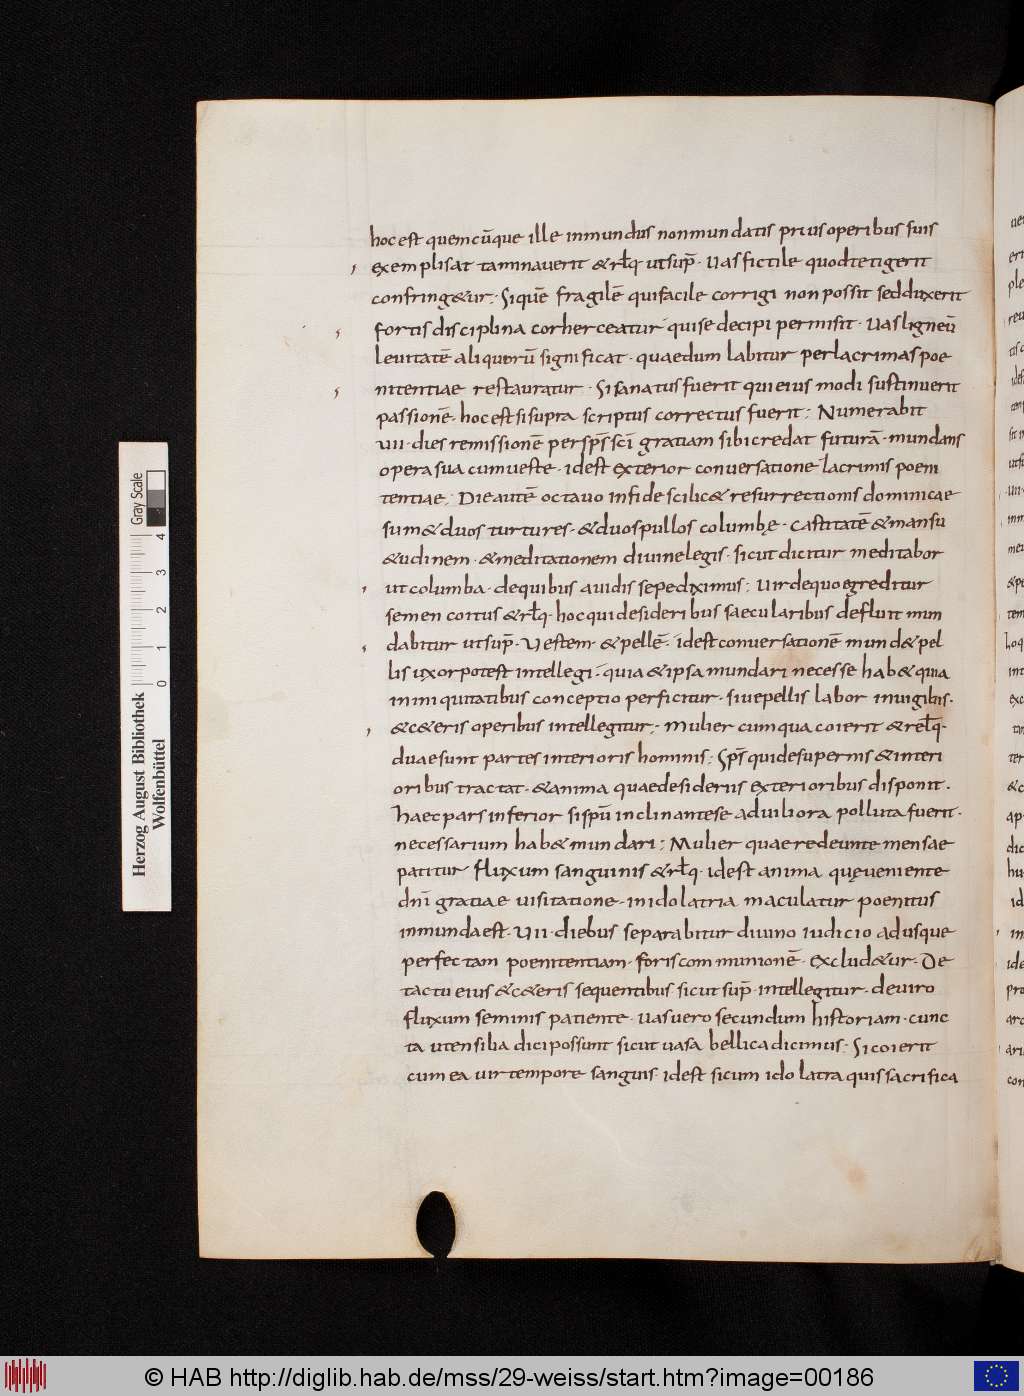 hoc est quemcūque ille inmundus non mundatis prius operibus suis
exemplis at taminaverit & rƚq ut sup̄. Uas fictile quod tetigerit
confring&ur. Si quē fragilē qui facile corrigi non possit sed duxerit
fortis disciplina corherceatur qui se decipi permisit. Uas ligneū
leuitatē aliquorū significat. quae dum labitur per lacrimas poe
nitentiae restauratur. Si sanatus fuerit qui eius modi sustinuerit
passionē. hoc est si supra scriptus correctus fuerit; Numerabit
uii. dies remissionē per sp̄s sc̄i gratiam sibi credat futurā. mundans
opera sua cum ueste. id est exterior conuersatione lacrimis poeni
tentiae; Die autē octauo in fide scilic& resurrectionis dominicae
sum& duos turtures. & duos pullos columbę. castitatē & mansu
&udinem. & meditationem diuine legis. sicut dicitur meditabor
ut columba. de quibus auidis sepe diximus; Uir de quo egreditur
semen coitus & rƚq. hoc qui desideribus saecularibus defluit mun
dabitur ut sup̄. Uestem. & pellē. id est conuersationē mund& pel
lis uxor potest intellegi. quia & ipsa mundari necesse hab& quia
in iniquitatibus conceptio perficitur. siue pellis labor in uigiliis.
& c&eris operibus intellegitur; Mulier cum qua coierit & relq̄.
duae sunt partes interioris hominis; Sp̄s qui de supernis & interi
oribus tractat. & anima quae desideriis exterioribus disponit.
haec pars inferior si sp̄ū inclinante se ad uiliora polluta fuerit.
necessarium hab& mundari; Mulier quae redeunte mensae
patitur fluxum sanguinis & rƚq. id est anima quę ueniente
dn̄i gratiae uisitatione. in idolatria maculatur poenitus
inmunda est. Uii. diebus separabitur diuino iudicio ad usque
perfectam poenitentiam. foris communionē. exclud&ur. De
tactu eius & c&eris sequentibus sicut sup̄. intellegitur. de uiro
fluxum seminis patiente. uas uero secundum historiam. cunc
ta utensilia dici possunt sicut uasa bellica dicimus; Si coierit
cum ea uir tempore sanguis. id est si cum idolatra quis sacrifica
Herzog August Bibliothek
Wolfenbüttel
0 1 2 3 4
Gray Scale
© HAB http://diglib.hab.de/mss/29-weiss/start.htm?image=00186